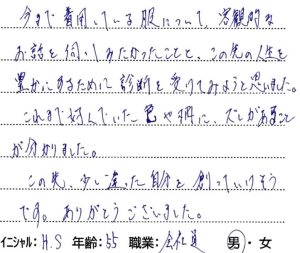 今まで着用している服について、客観的な
お話を伺ってみたかったことと、この先の人生を
豊かにするために診断を受けてみようと思いました。
これまで好んでいた色や柄に、ズレがあること
が分かりました。
この先、少し違った自分を創っていけそう
です。ありがとうございました。
イニシャル：H.S 年齢：55 職業：会社員 男・女